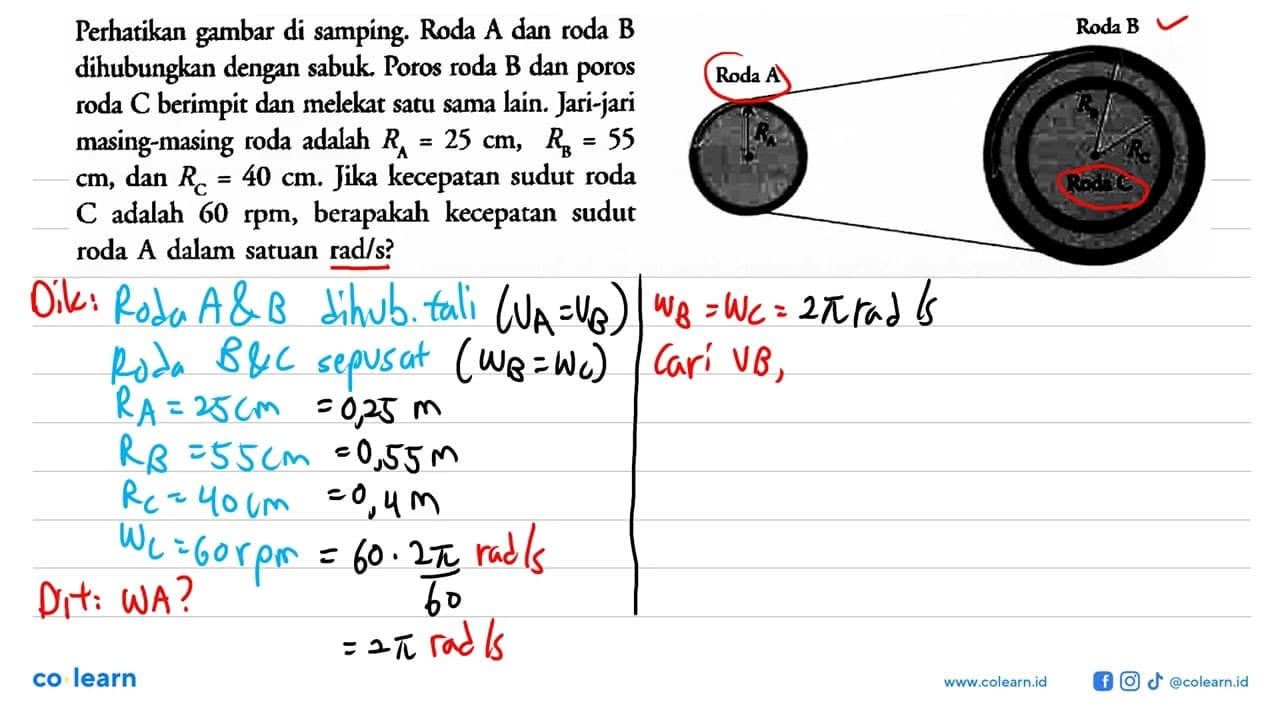 Perhatikan gambar di samping. Roda A dan roda B
dihubungkan dengan sabuk. Poros roda B dan poros
roda C berimpit dan melekat satu sama lain. Jari-jari
masing-masing roda adalah R_A = 25 cm, R_B = 55
cm, dan R_C = 40 cm. Jika kecepatan sudut roda
C adalah 60 rpm, berapakah kecepatan sudut
roda A dalam satuan rad/s?
Roda A
R_A
Roda B
R_B
R_C
Roda C
Dik: Roda A & B dihub. tali (VA = VB)
Roda B & C sepusat (WB = WC)
RA = 25 cm = 0,25 m
RB = 55 cm = 0,55 m
RC = 40 cm = 0,4 m
WC = 60 rpm = 60 . 2π/60 rad/s
Dit: WA?
= 2π rad/s
WB = WC = 2π rad/s
Cari VB,
co learn
www.colearn.id
@colearn.id